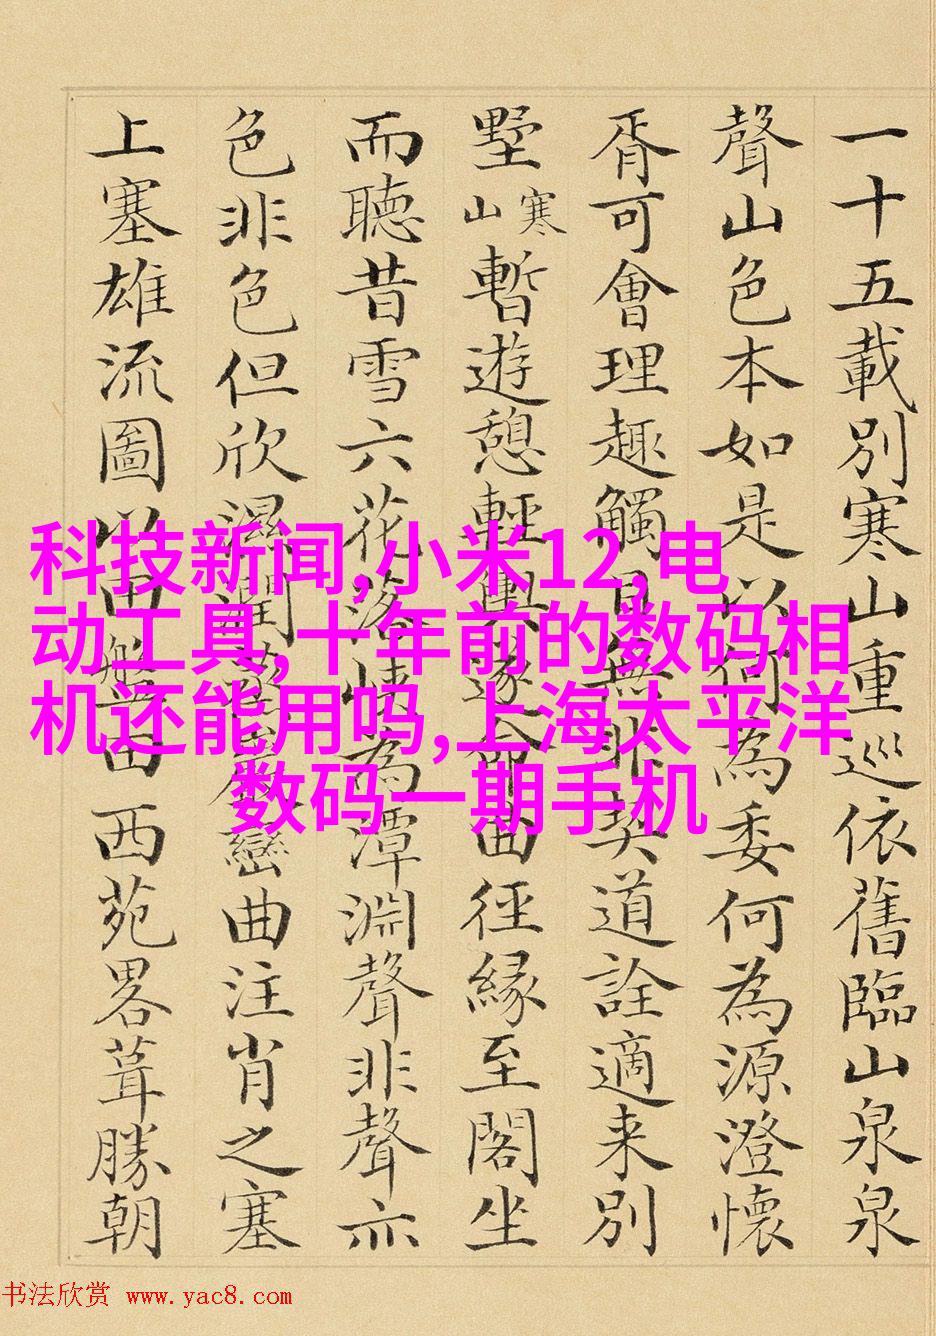 一十五載別寒山重巡依舊臨山泉泉
聲山色本如是以何為委何為源澄懷
胥可會理趣觸目無非契道詮適来別
墅寒山暫遊憩輕輿遂命曲徑緣至閣坐
而聽昔雪六花落為潭淵聲非聲亦
色非色但欣濕潤巒曲注肖之塞
上塞雄流圖以盤田西苑畧葺勝朝
科技新闻,小米12,电
动工具,十年前的数码相
机还能用吗,上海太平洋
数码一期手机
书法欣赏 www.yac8.com